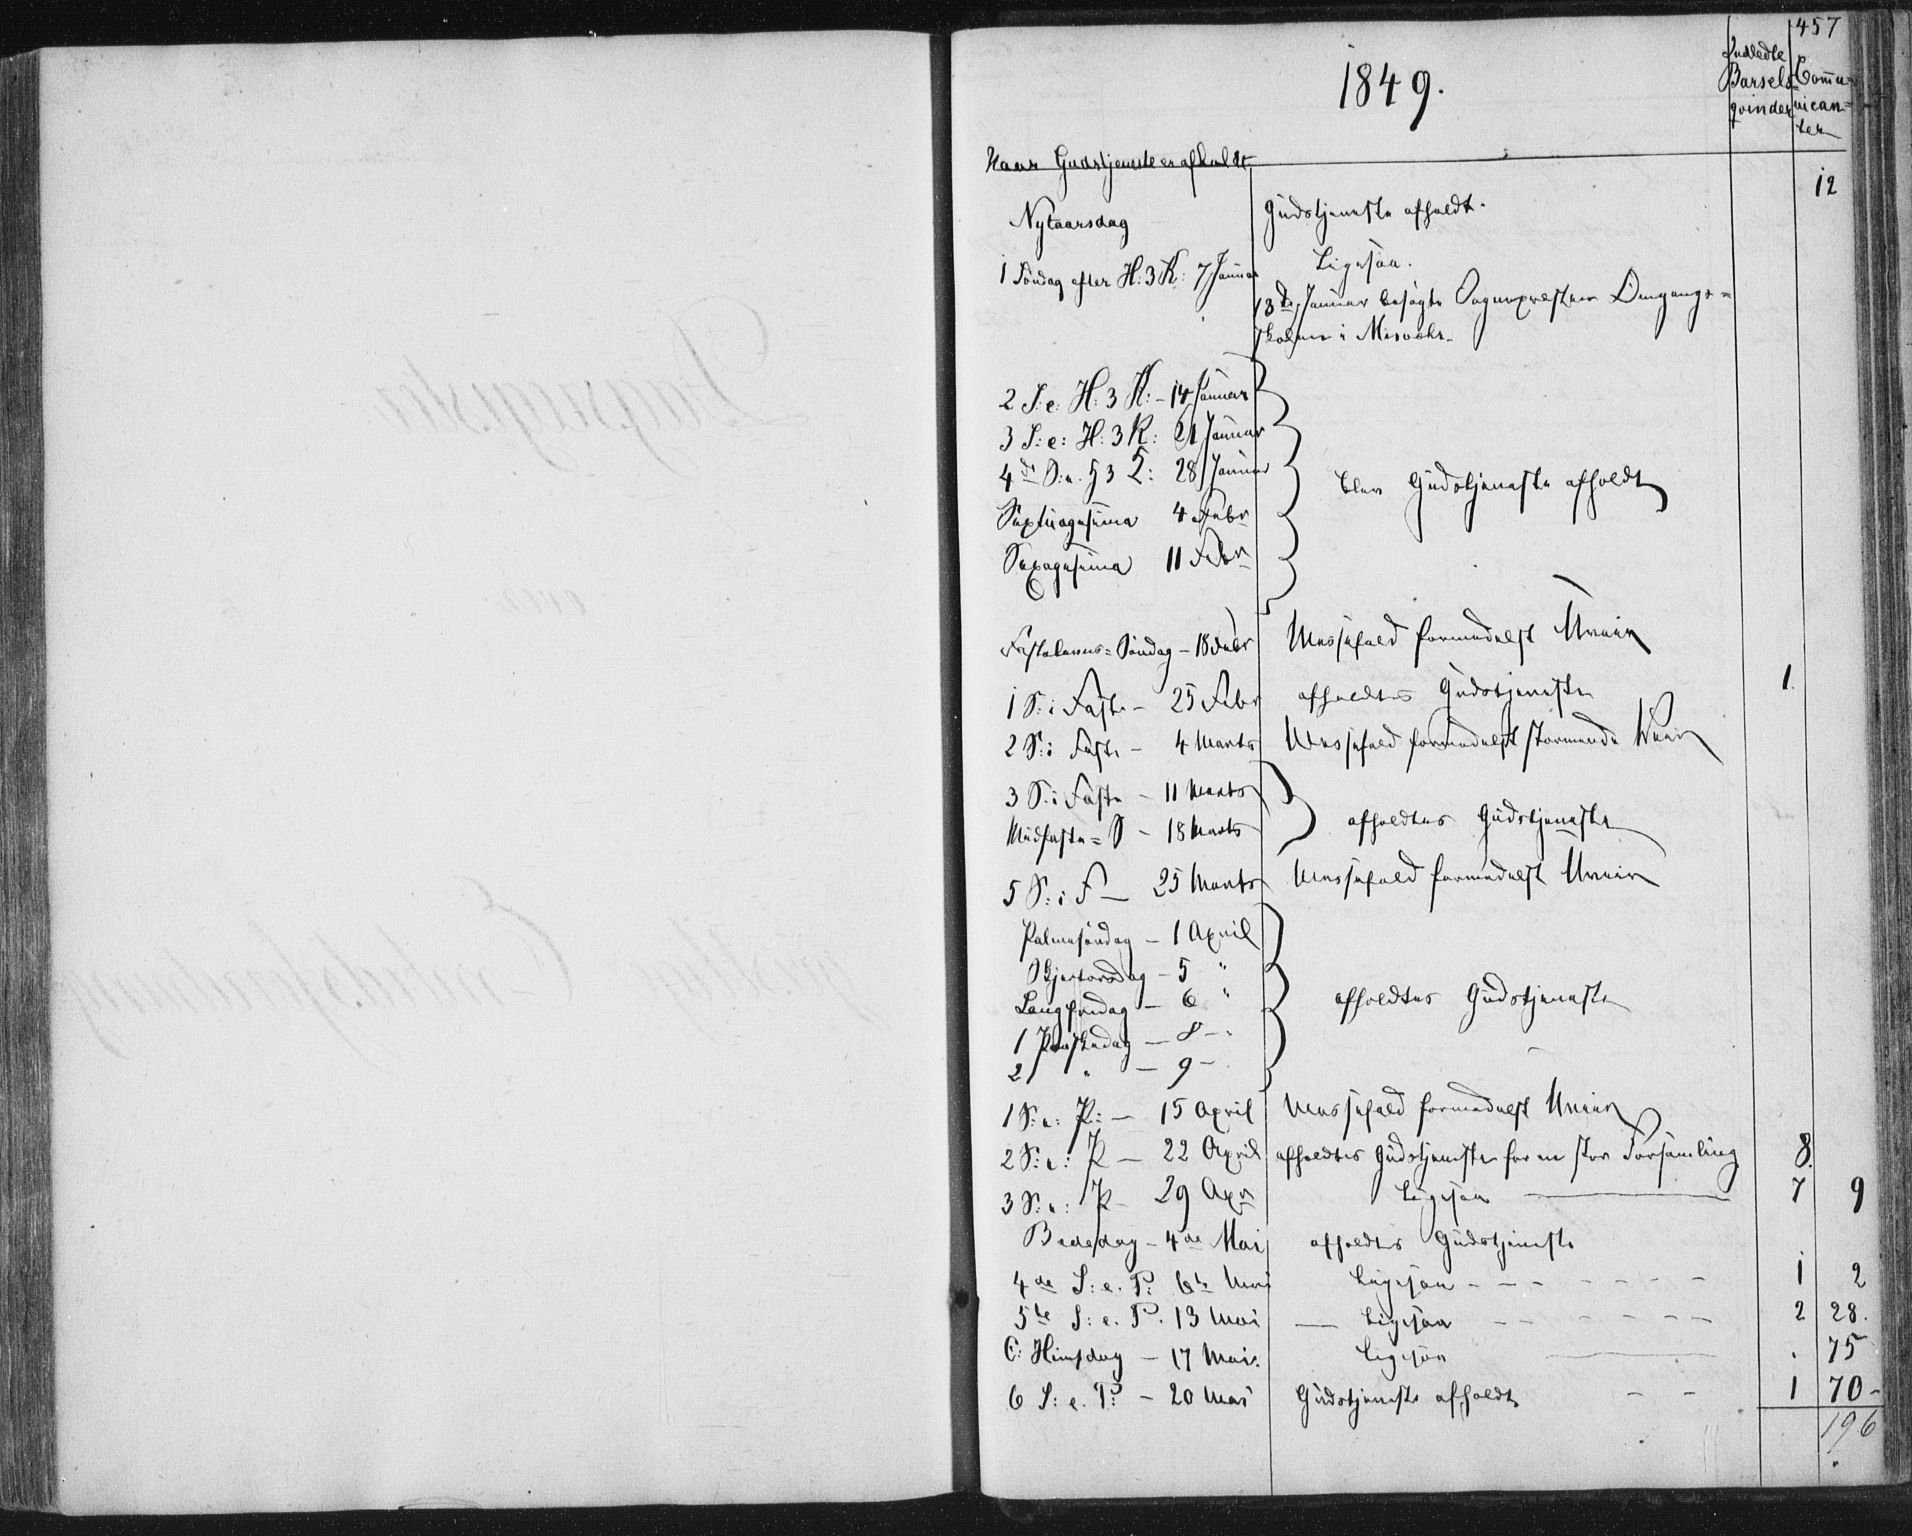 457
1849.
Indledte Barselqvinder
Communicanter
Naar Gudstjeneste er afholdt
12
Nytaarsdag Gudstjeneste afholdt.
1 Søndag efter H: 3 K: 7 Januar Ligesaa.
13de Januar besøgte Sognepresten Omgangs=
skolen i Misvær.
2 S: e: H: 3 K: - 14 Januar
3 S: e: H: 3 K: 21 Januar
4de S: e. H 3 K: 28 Januar blev Gudstjeneste afholdt
Septuagesima 4 Febr
Sexagesima 11 Febr
Fastelavns=Søndag - 18 Febr Messefald formedelst Uveir
1 S: i Faste - 25 Febr afholdtes Gudstjeneste 1.
2 S: i Faste - 4 Marts Messefald formedelst stormende Veir
3 S: i Faste - 11 Marts
Midfaste=S - 18 Marts afholdtes Gudstjeneste
5 S: i F - 25 Marts Messefald formedelst Uveir
Palmesøndag - 1 April
Skjertorsdag - 5 "
Langfredag - 6 " afholdtes Gudstjeneste
1 Paaskedag - 8 -
2 " - 9 -
1 S: e: P: - 15 April Messefald formedelst Uveir
2 S: e: P - 22 April afholdtes Gudstjeneste for en stor Forsamling 8.
3 S: e: P - 29 Apr Ligesaa 7 9
Bededag - 4de Mai afholdtes Gudstjeneste
4de S: e. P: 6te Mai Ligesaa - - - - - - - 1 2
5te S: e. P. 13 Mai - Ligesaa - - - - - - 2 28.
C: Himfdag - 17 Mai. Ligesaa . 75
6 S: e. P: - 20 Mai Gudstjeneste afholdt - - 1 70 -
196
Dagsregister
over